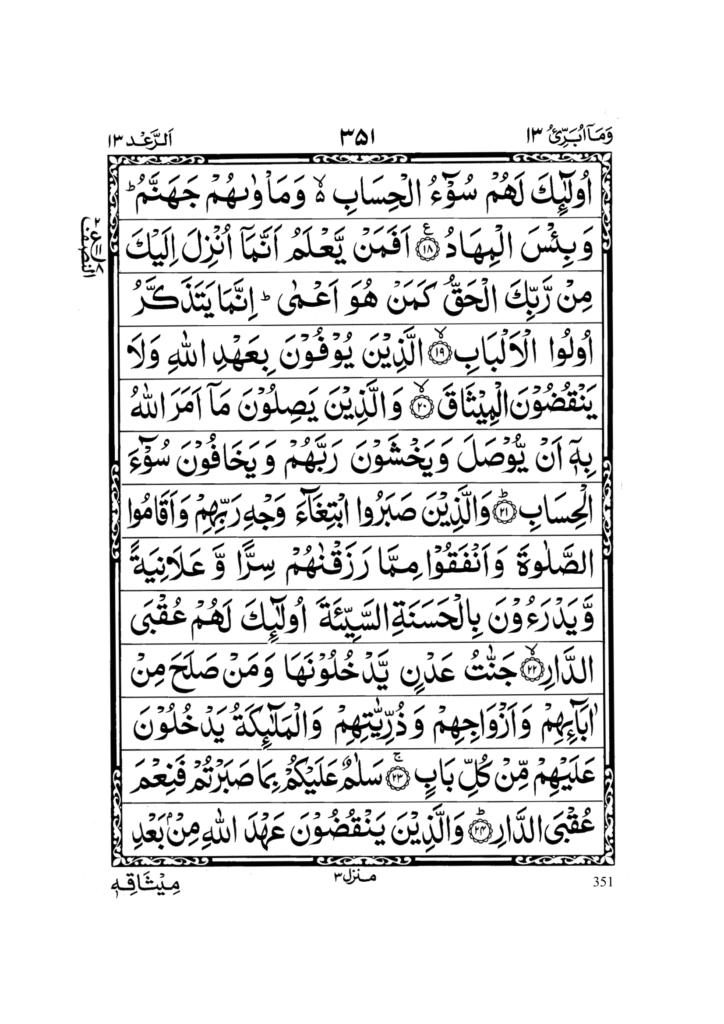 وَمَآاُبَرِّئُ ١٣ ٣٥١ اَلرَّعْد ١٣
اُولٰٓئِكَ لَهُمْ سُوْٓءُ الْحِسَابِ ۙ۬ وَمَاْوٰىهُمْ جَهَنَّمُ ؕ
وَبِئْسَ الْمِهَادُ ۝۱۸ ع اَفَمَنْ يَّعْلَمُ اَنَّمَاۤ اُنْزِلَ اِلَيْكَ
مِنْ رَّبِّكَ الْحَقُّ كَمَنْ هُوَ اَعْمٰى ؕ اِنَّمَا يَتَذَكَّرُ
اُولُوا الْاَلْبَابِ ۝۱۹ ۙ الَّذِيْنَ يُوْفُوْنَ بِعَهْدِ اللّٰهِ وَلَا
يَنْقُضُوْنَ الْمِيْثَاقَ ۝۲۰ ۙ وَالَّذِيْنَ يَصِلُوْنَ مَاۤ اَمَرَ اللّٰهُ
بِهٖۤ اَنْ يُّوْصَلَ وَيَخْشَوْنَ رَبَّهُمْ وَيَخَافُوْنَ سُوْٓءَ
الْحِسَابِ ۝۲۱ ؕ وَالَّذِيْنَ صَبَرُوا ابْتِغَآءَ وَجْهِ رَبِّهِمْ وَاَقَامُوا
الصَّلٰوةَ وَاَنْفَقُوْا مِمَّا رَزَقْنٰهُمْ سِرًّا وَّ عَلَانِيَةً
وَّيَدْرَءُوْنَ بِالْحَسَنَةِ السَّيِّئَةَ اُولٰٓئِكَ لَهُمْ عُقْبَى
الدَّارِ ۝۲۲ ۙ جَنّٰتُ عَدْنٍ يَّدْخُلُوْنَهَا وَمَنْ صَلَحَ مِنْ
اٰبَآئِهِمْ وَاَزْوَاجِهِمْ وَذُرِّيّٰتِهِمْ وَالْمَلٰٓئِكَةُ يَدْخُلُوْنَ
عَلَيْهِمْ مِّنْ كُلِّ بَابٍ ۝۲۳ ۚ سَلٰمٌ عَلَيْكُمْ بِمَا صَبَرْتُمْ فَنِعْمَ
عُقْبَى الدَّارِ ۝۲۴ ؕ وَالَّذِيْنَ يَنْقُضُوْنَ عَهْدَ اللّٰهِ مِنْۢ بَعْدِ
351 منزل ٣ مِيْثَاقِهٖ